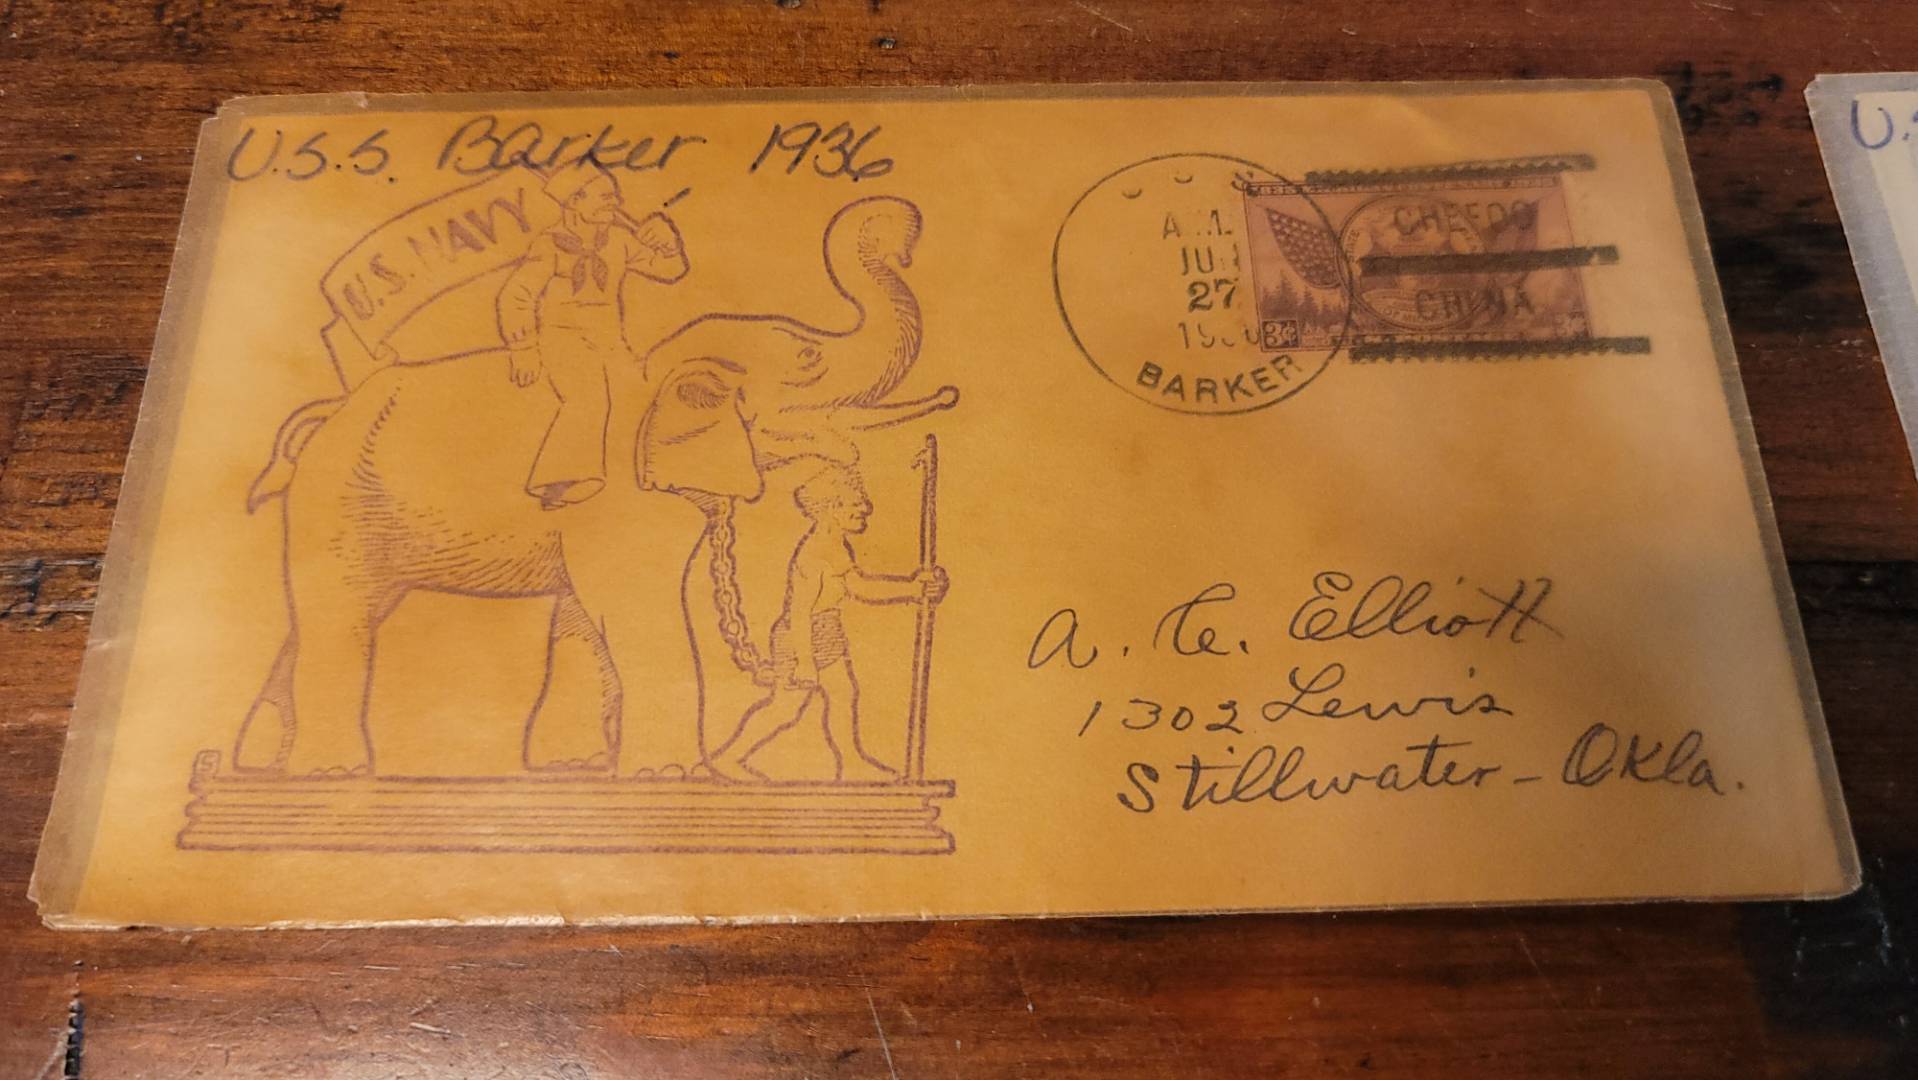 U.S.S. Barker 1936
U.S. NAVY
A.M.
27
BARKER
CHEFOO
CHINA
3¢
A. C. Elliott
1302 Lewis
Stillwater - Okla.
U.S